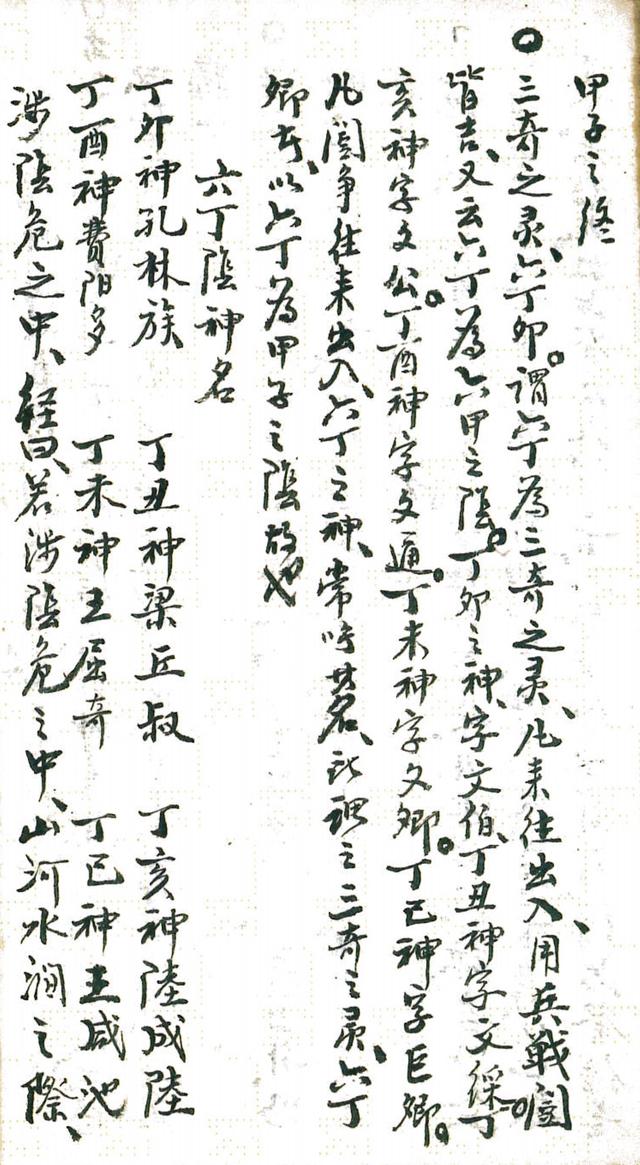 甲子之終
〇三奇之灵、六丁卯。謂六丁為三奇之灵、凡来往出入、用兵戦闘
皆吉、又云六丁為六甲之陰。丁卯之神、字文伯、丁丑神字文綵。丁
亥神字文公。丁酉神字文通。丁未神字文卿。丁巳神字巨卿。
凡闘争往来出入、六丁之神、常呼其名、此謂之三奇之灵、六丁
卿者、以六丁為甲子之陰故也
六丁陰神名
丁卯神孔林族 丁丑神梁丘叔 丁亥神陸成陸
丁酉神費陽多 丁未神王屈奇 丁巳神王咸池
涉险危之中、経曰、若涉险危之中、山河水澗之際、